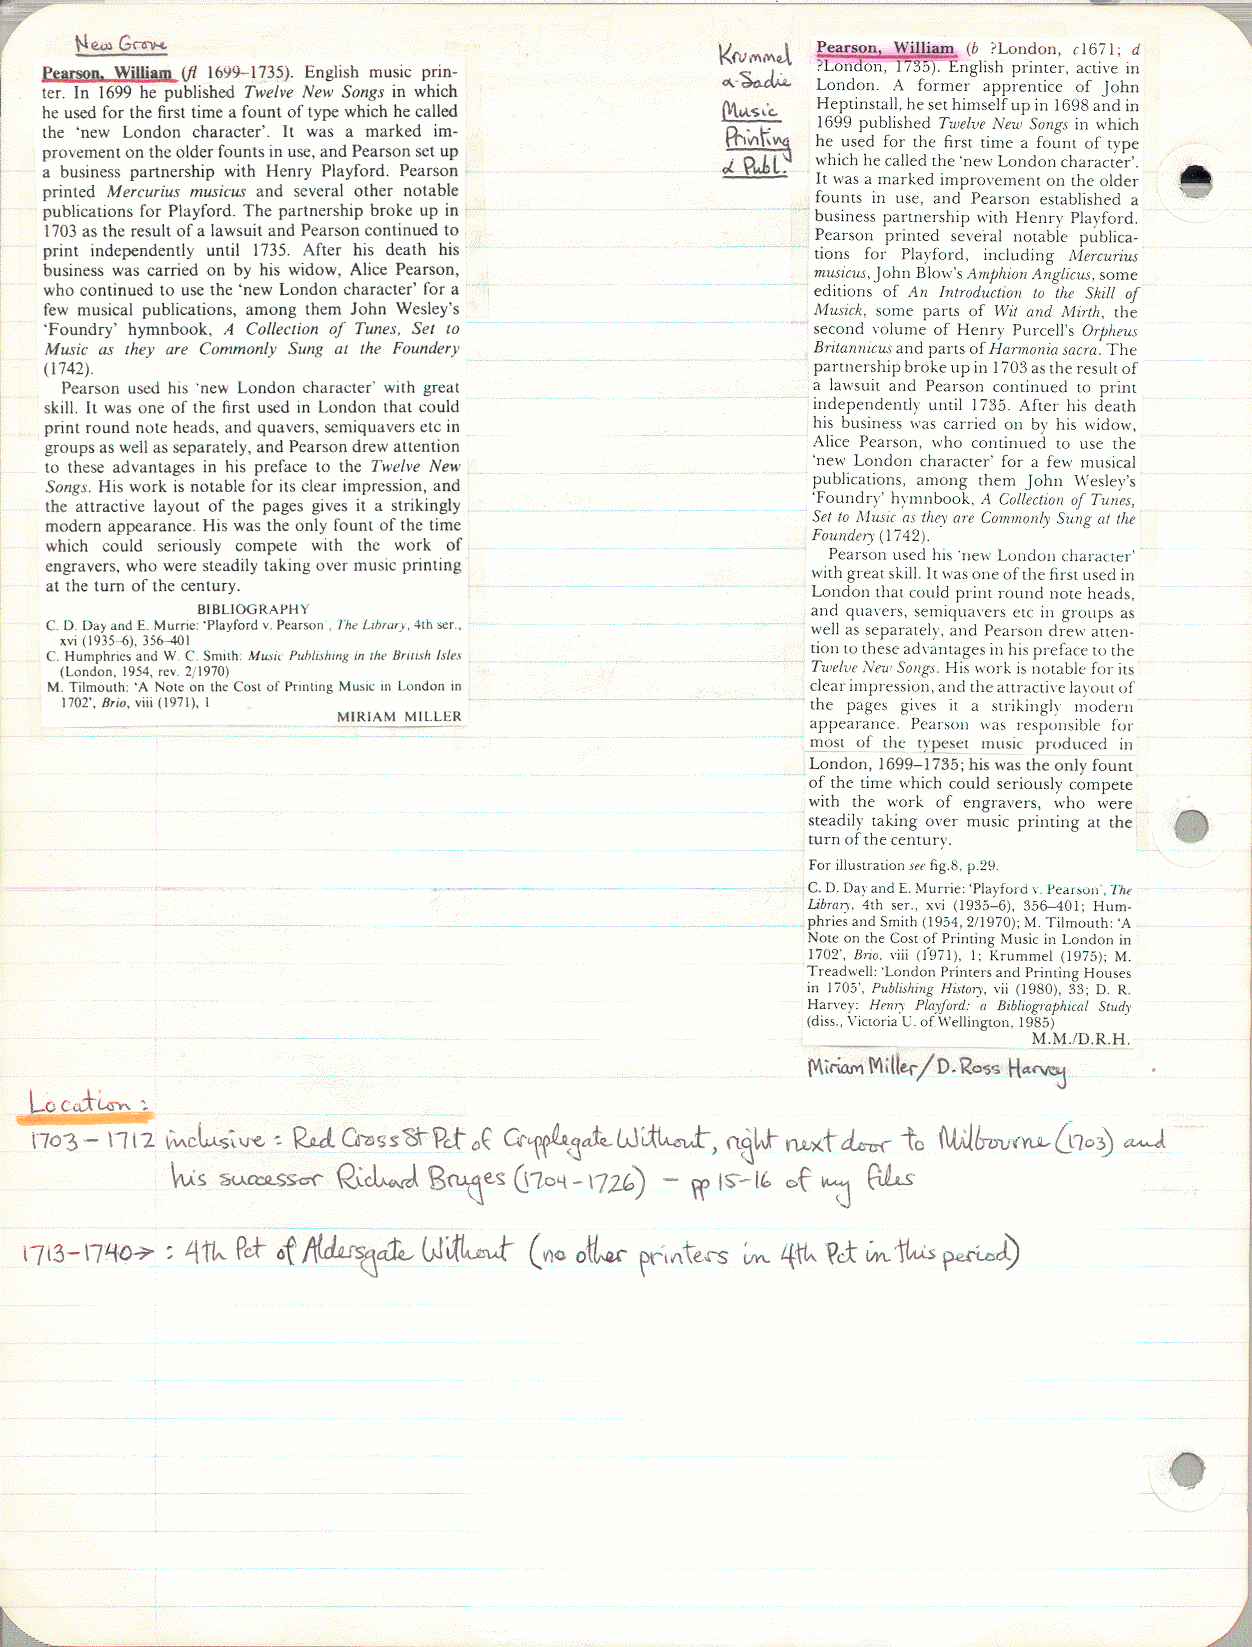 New Grove
Pearson, William (fl 1699–1735). English music prin-
ter. In 1699 he published Twelve New Songs in which
he used for the first time a fount of type which he called
the ‘new London character’. It was a marked im-
provement on the older founts in use, and Pearson set up
a business partnership with Henry Playford. Pearson
printed Mercurius musicus and several other notable
publications for Playford. The partnership broke up in
1703 as the result of a lawsuit and Pearson continued to
print independently until 1735. After his death his
business was carried on by his widow, Alice Pearson,
who continued to use the ‘new London character’ for a
few musical publications, among them John Wesley’s
‘Foundry’ hymnbook, A Collection of Tunes, Set to
Music as they are Commonly Sung at the Foundery
(1742).
Pearson used his ‘new London character’ with great
skill. It was one of the first used in London that could
print round note heads, and quavers, semiquavers etc in
groups as well as separately, and Pearson drew attention
to these advantages in his preface to the Twelve New
Songs. His work is notable for its clear impression, and
the attractive layout of the pages gives it a strikingly
modern appearance. His was the only fount of the time
which could seriously compete with the work of
engravers, who were steadily taking over music printing
at the turn of the century.
BIBLIOGRAPHY
C. D. Day and E. Murrie: ‘Playford v. Pearson’, The Library, 4th ser.,
xvi (1935–6), 356–401
C. Humphries and W. C. Smith: Music Publishing in the British Isles
(London, 1954, rev. 2/1970)
M. Tilmouth: ‘A Note on the Cost of Printing Music in London in
1702’, Brio, viii (1971), 1
MIRIAM MILLER
Krummel
& Sadie
Music
Printing
& Publ.
Pearson, William (b ?London, c1671; d
?London, 1735). English printer, active in
London. A former apprentice of John
Heptinstall, he set himself up in 1698 and in
1699 published Twelve New Songs in which
he used for the first time a fount of type
which he called the ‘new London character’.
It was a marked improvement on the older
founts in use, and Pearson established a
business partnership with Henry Playford.
Pearson printed several notable publica-
tions for Playford, including Mercurius
musicus, John Blow’s Amphion Anglicus, some
editions of An Introduction to the Skill of
Musick, some parts of Wit and Mirth, the
second volume of Henry Purcell’s Orpheus
Britannicus and parts of Harmonia sacra. The
partnership broke up in 1703 as the result of
a lawsuit and Pearson continued to print
independently until 1735. After his death
his business was carried on by his widow,
Alice Pearson, who continued to use the
‘new London character’ for a few musical
publications, among them John Wesley’s
‘Foundry’ hymnbook, A Collection of Tunes,
Set to Music as they are Commonly Sung at the
Foundery (1742).
Pearson used his ‘new London character’
with great skill. It was one of the first used in
London that could print round note heads,
and quavers, semiquavers etc in groups as
well as separately, and Pearson drew atten-
tion to these advantages in his preface to the
Twelve New Songs. His work is notable for its
clear impression, and the attractive layout of
the pages gives it a strikingly modern
appearance. Pearson was responsible for
most of the typeset music produced in
London, 1699–1735; his was the only fount
of the time which could seriously compete
with the work of engravers, who were
steadily taking over music printing at the
turn of the century.
For illustration see fig.8, p.29.
C. D. Day and E. Murrie: ‘Playford v. Pearson’, The
Library, 4th ser., xvi (1935–6), 356–401; Hum-
phries and Smith (1954, 2/1970); M. Tilmouth: ‘A
Note on the Cost of Printing Music in London in
1702’, Brio, viii (1971), 1; Krummel (1975); M.
Treadwell: ‘London Printers and Printing Houses
in 1705’, Publishing History, vii (1980), 33; D. R.
Harvey: Henry Playford: a Bibliographical Study
(diss., Victoria U. of Wellington, 1985)
M.M./D.R.H.
Miriam Miller/D. Ross Harvey
Location:
1703 – 1712 inclusive: Red Cross St Pct of Cripplegate Without, right next door to Milbourne (1703) and
his successor Richard Bruges (1704-1726) – pp 15-16 of my files
1713-1740→ : 4th Pct of Aldersgate Without (no other printers in 4th Pct in this period)